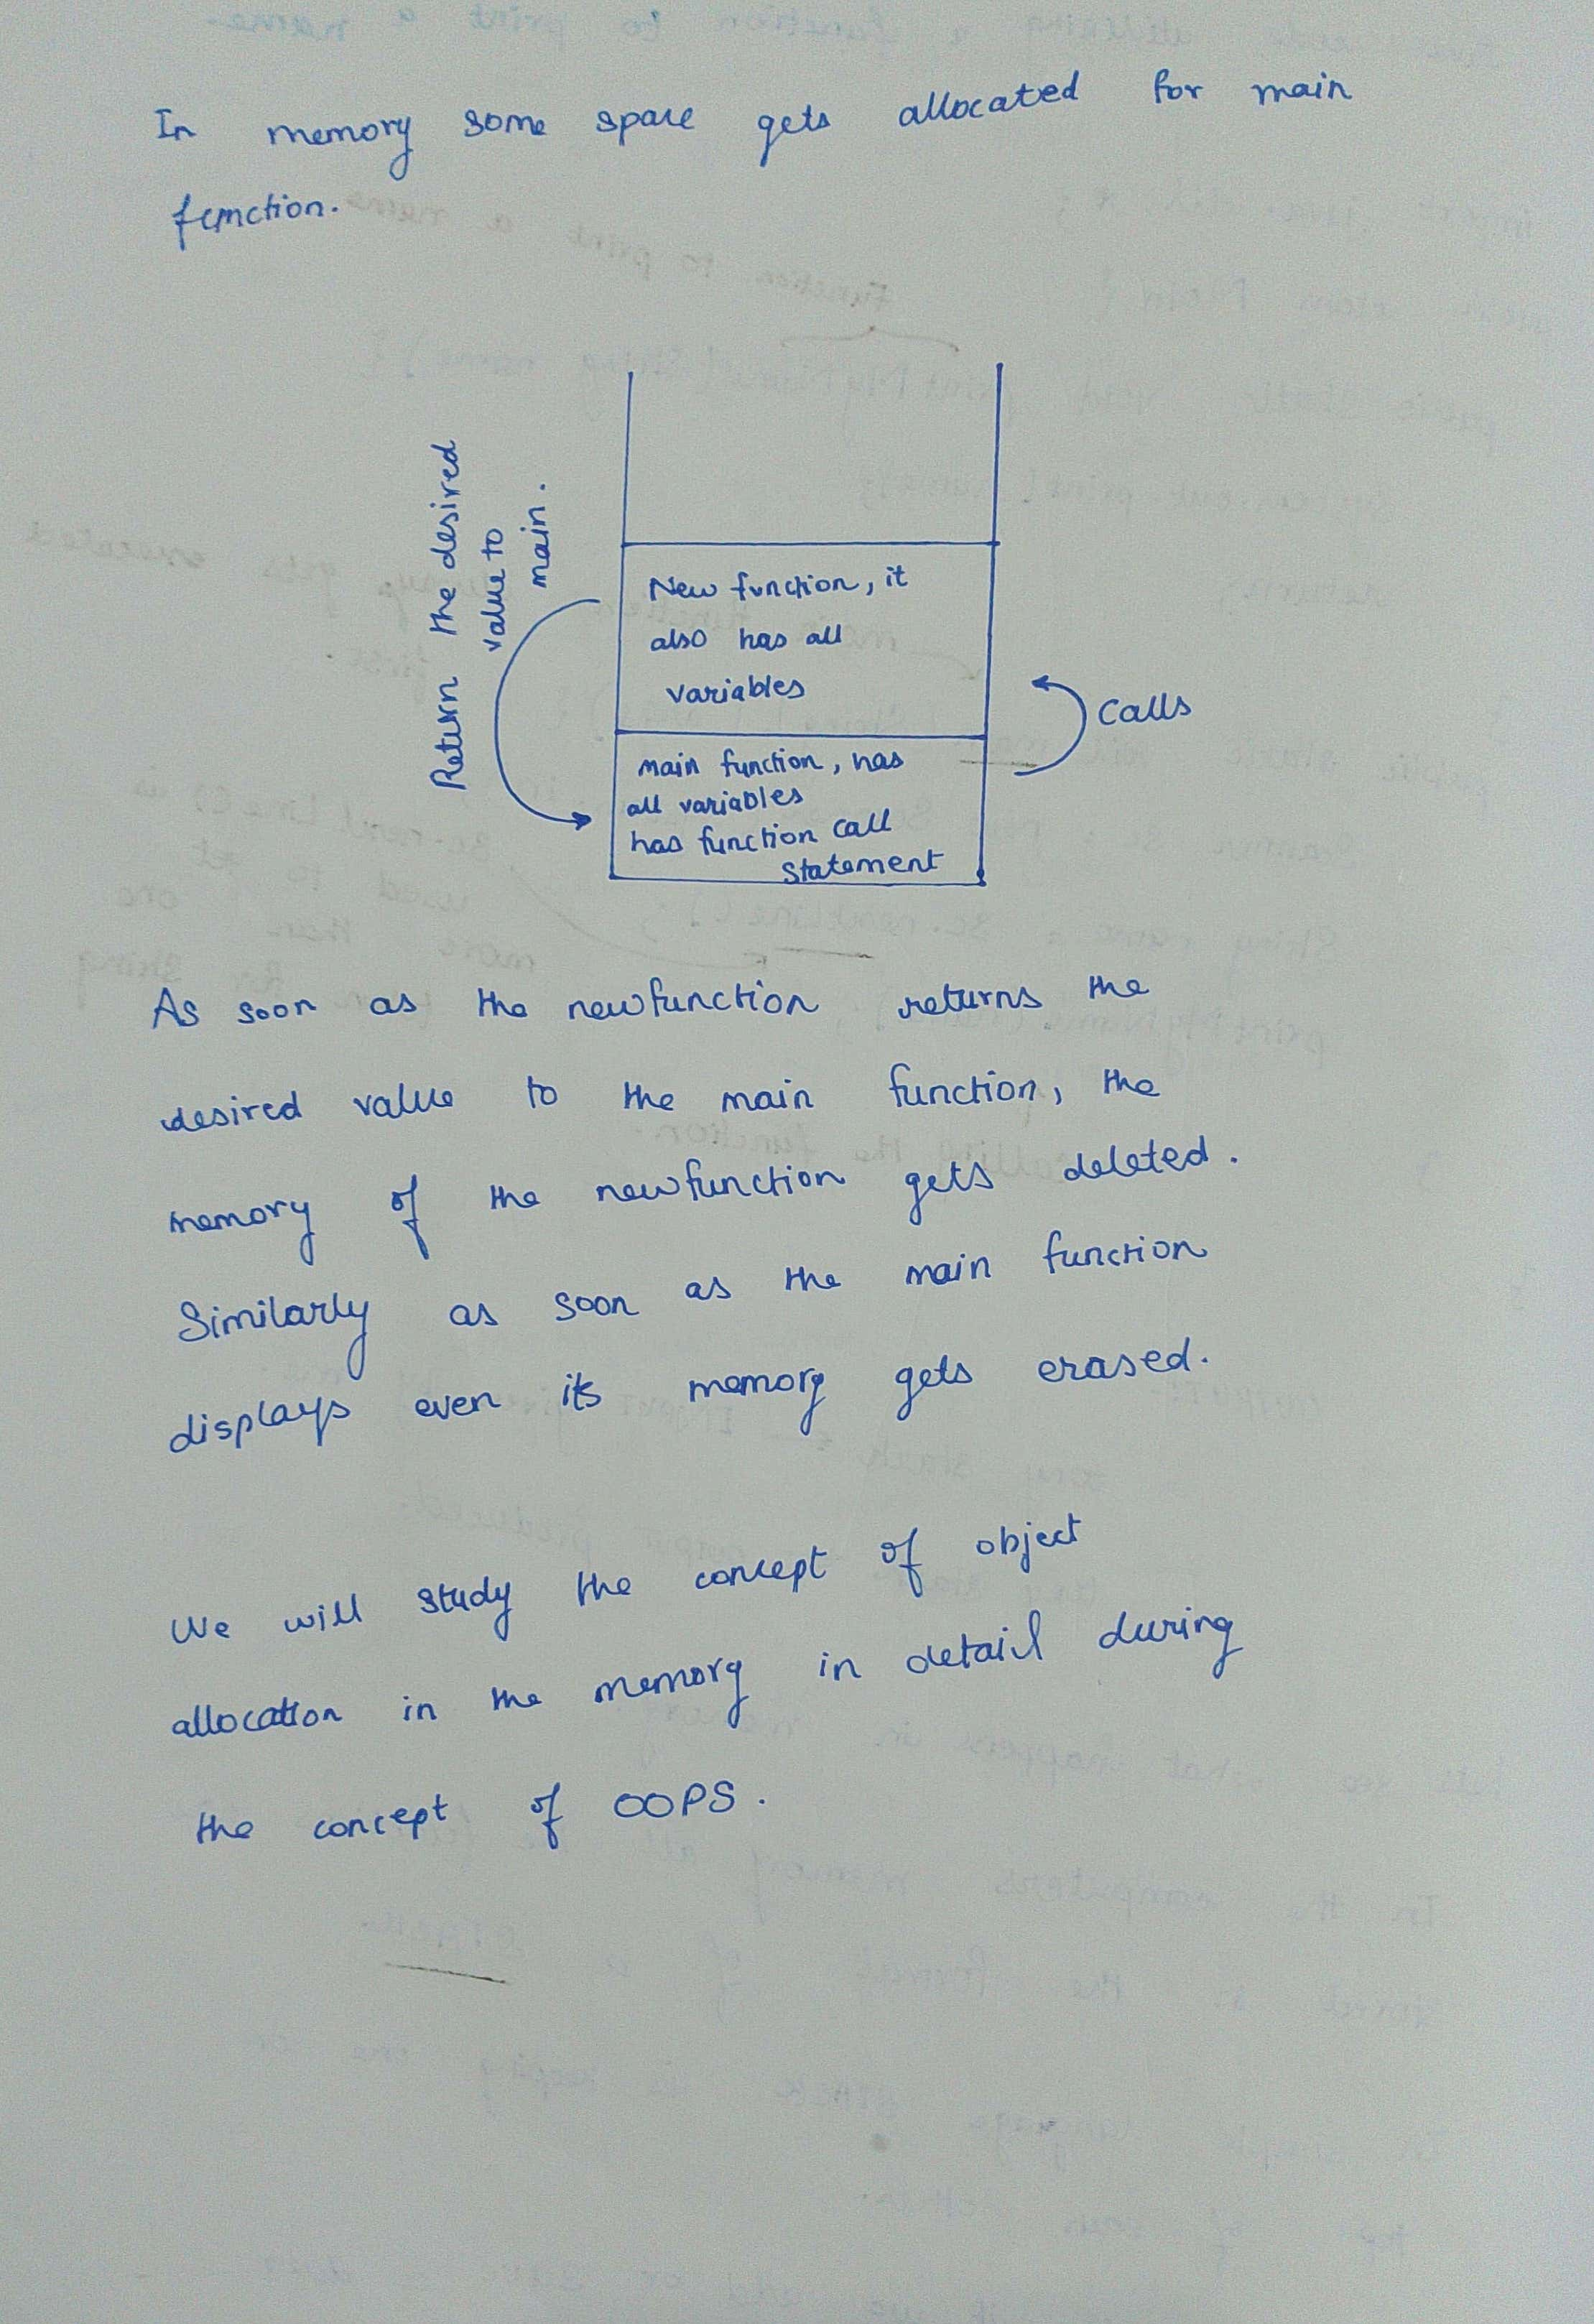 In memory some space gets allocated for main
function.
Return the desired
value to
main.
New function, it
also has all
variables
Calls
main function, has
all variables
has function call
statement
As soon as the newfunction returns the
desired value to the main function, the
memory of the newfunction gets deleted.
Similarly as soon as the main function
displays even its memory gets erased.
We will study the concept of object
allocation in the memory in detail during
the concept of OOPS.